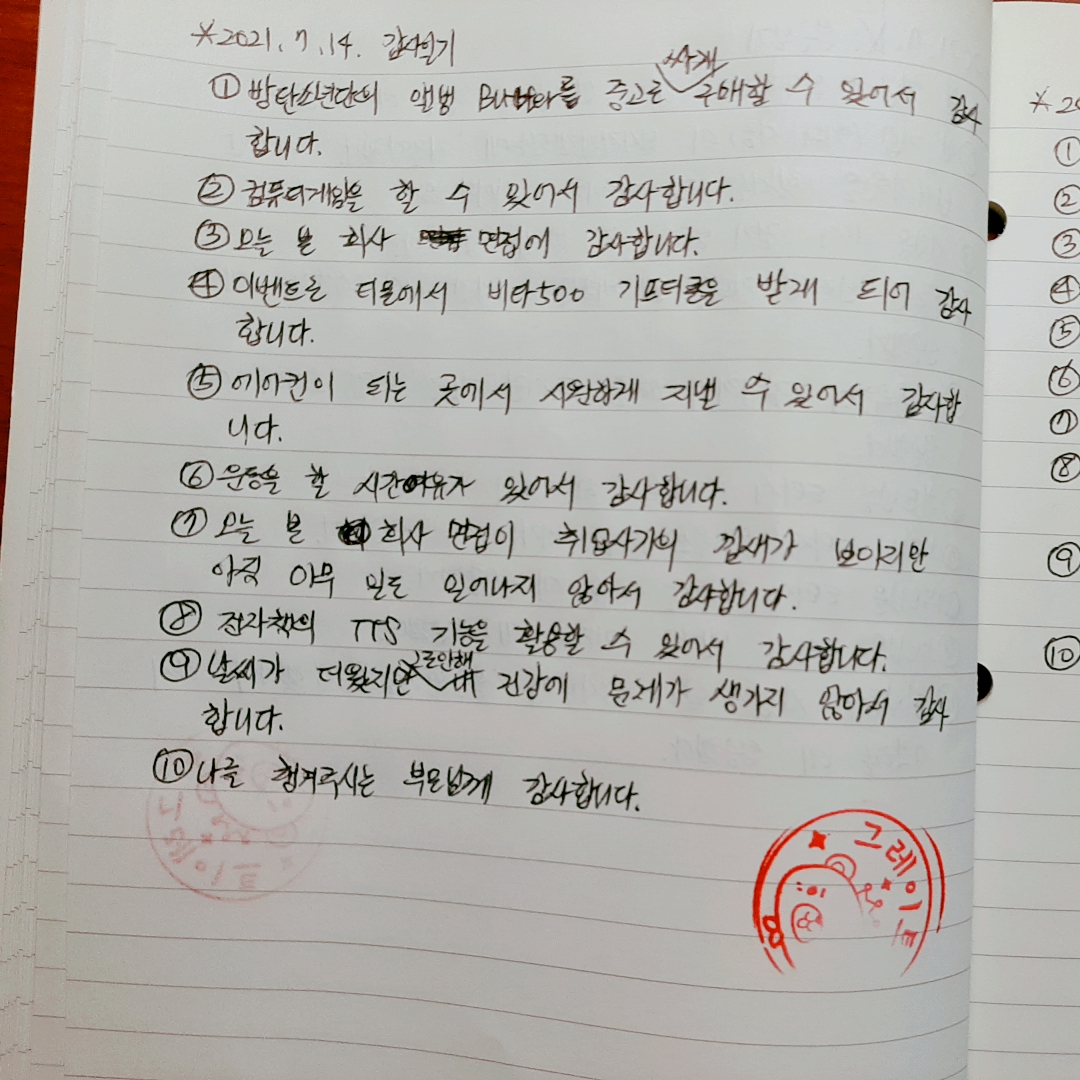 *2021.7.14. 감사일기
① 방탄소년단의 앨범 Butter를 중고로 싸게 구매할 수 있어서 감사
합니다.
② 컴퓨터게임을 할 수 있어서 감사합니다.
③ 오늘 본 회사 면접에 감사합니다.
④ 이벤트로 더몰에서 비타500 기프티콘을 받게 되어 감사
합니다.
⑤ 에어컨이 되는 곳에서 시원하게 지낼 수 있어서 감사합
니다.
⑥ 운동을 할 시간여유가 있어서 감사합니다.
⑦ 오늘 본 회사 면접이 취업사기의 낌새가 보이지만
아직 아무 일도 일어나지 않아서 감사합니다.
⑧ 전자책의 TTS 기능을 활용할 수 있어서 감사합니다.
⑨ 날씨가 더웠지만 그로인해 내 건강에 문제가 생기지 않아서 감사
합니다.
⑩ 나를 챙겨주시는 부모님께 감사합니다.
그레이트
*20
①
②
③
④
⑤
⑥
⑦
⑧
⑨
⑩